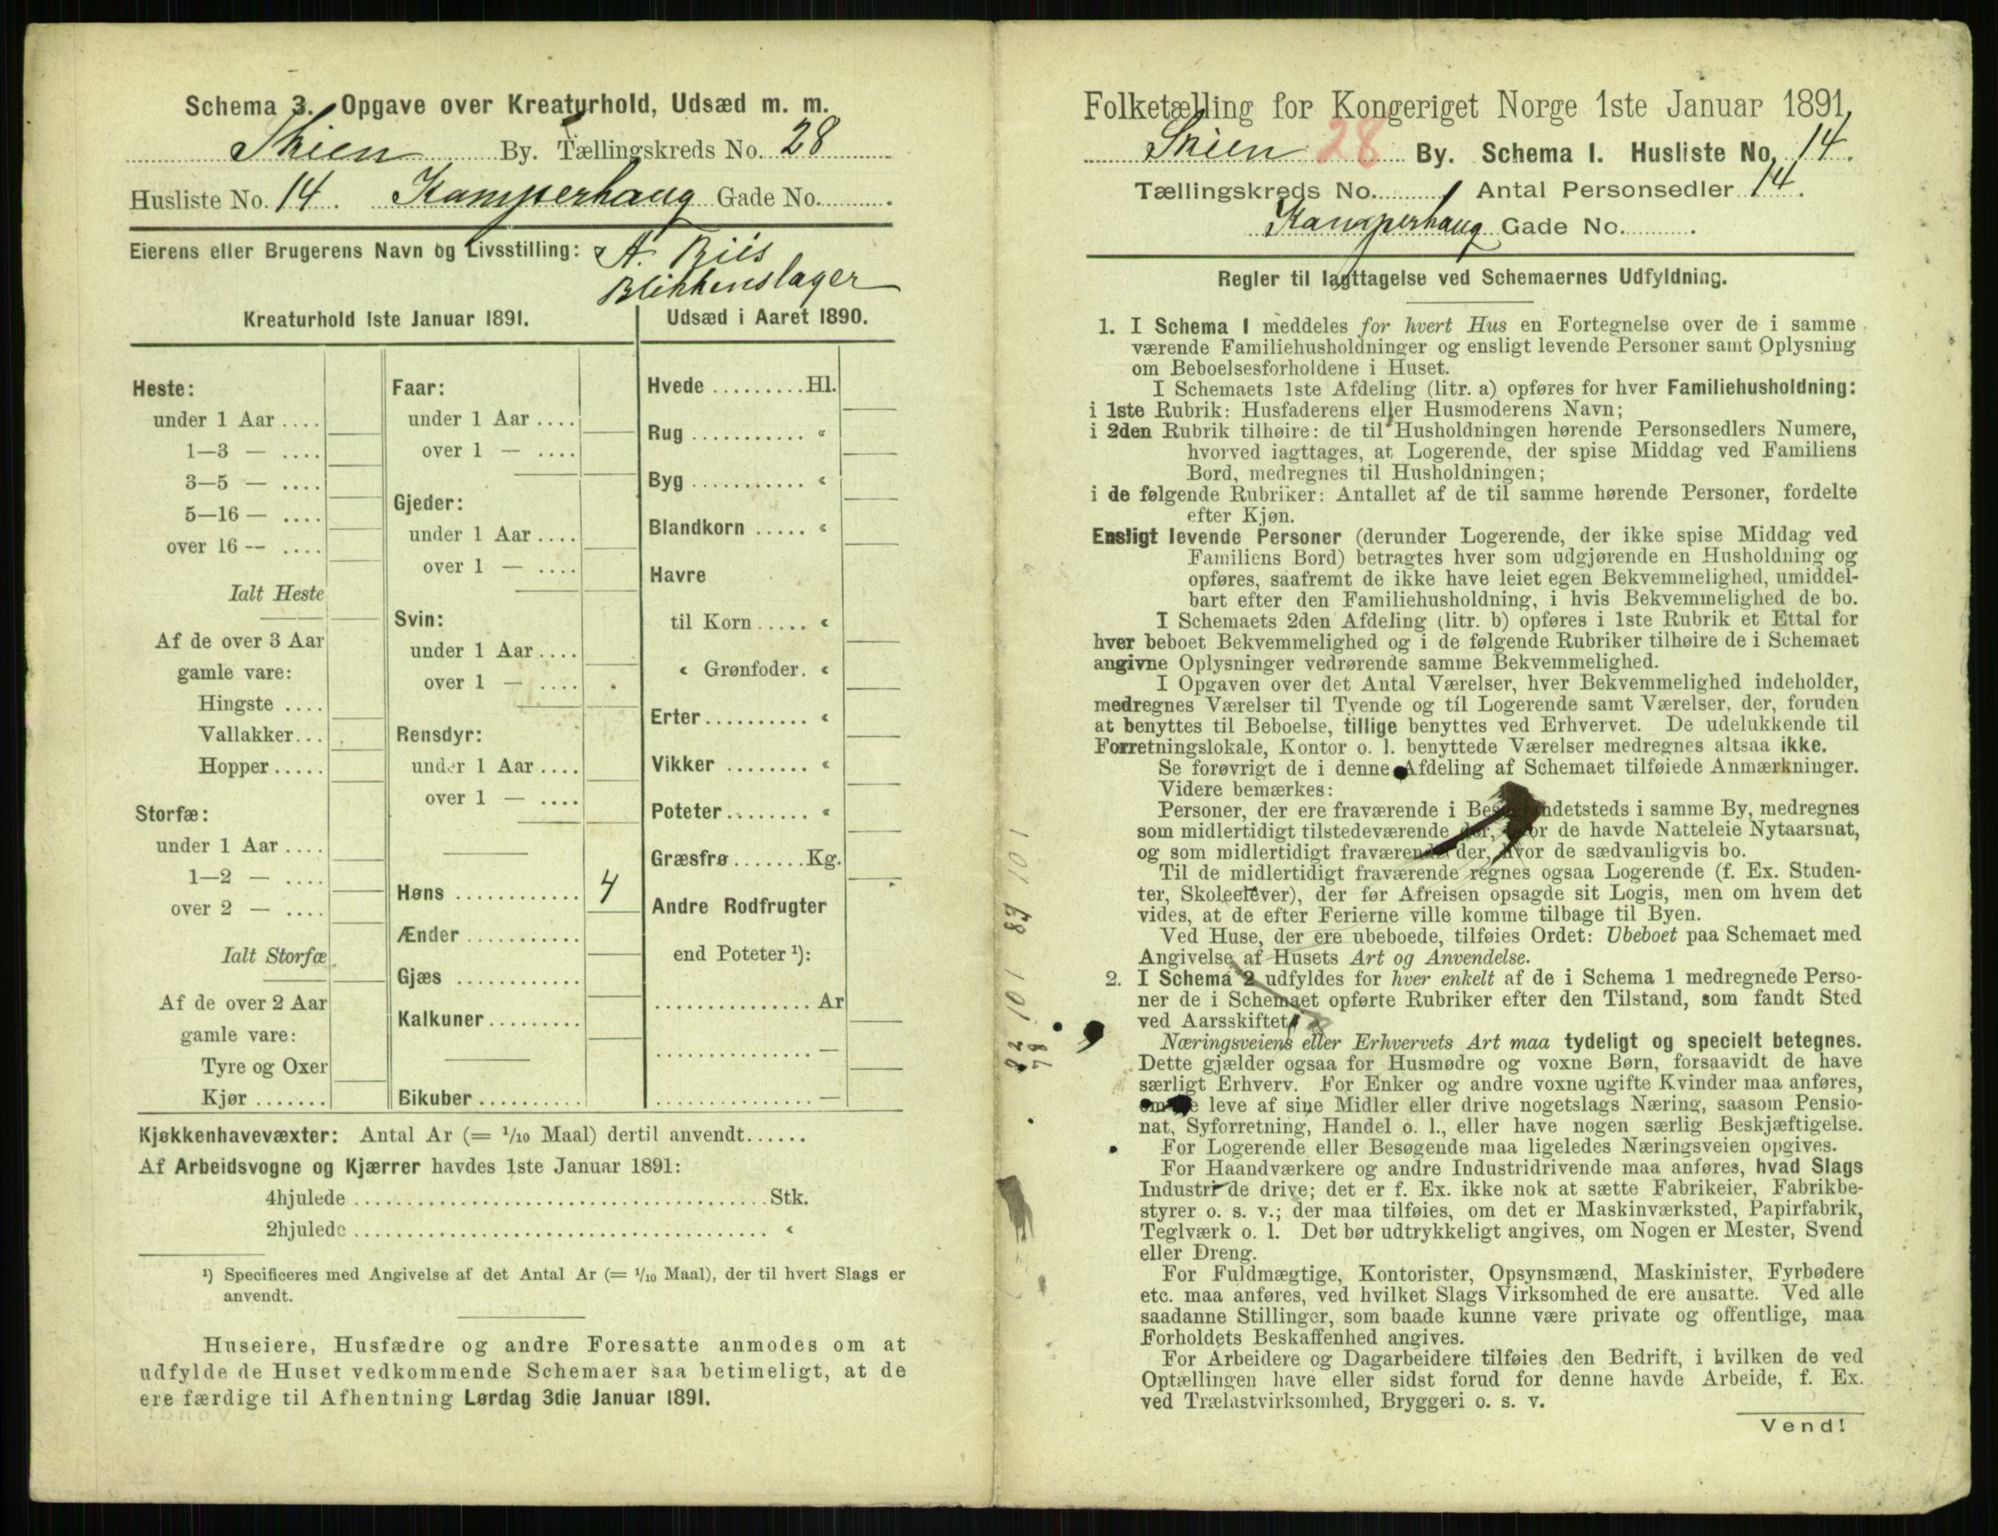 Schema 3. Opgave over Kreaturhold, Udsæd m. m.
Skien By. Tællingskreds No. 28
Husliste No. 14. Kamperhaug Gade No.
Eierens eller Brugerens Navn og Livsstilling: A. Riis
Blikkenslager
Kreaturhold 1ste Januar 1891.
Heste:
under 1 Aar ....
1—3 — ....
3—5 — ....
5—16 — ....
over 16 -- ....
Ialt Heste
Af de over 3 Aar
gamle vare:
Hingste ....
Vallakker...
Hopper.....
Storfæ:
under 1 Aar ....
1—2 — ....
over 2 — ....
Ialt Storfæ
Af de over 2 Aar
gamle vare:
Tyre og Oxer
Kjør .......
Faar:
under 1 Aar ....
over 1 — ....
Gjeder:
under 1 Aar ....
over 1 — ....
Svin:
under 1 Aar ....
over 1 — ....
Rensdyr:
under 1 Aar ....
over 1 — ....
Høns ............ 4
Ænder ...........
Gjæs ............
Kalkuner.........
Bikuber..........
Udsæd i Aaret 1890.
Hvede .........Hl.
Rug ........... «
Byg ........... «
Blandkorn ..... «
Havre
til Korn ..... «
« Grønfoder. «
Erter.......... «
Vikker ........ «
Poteter........ «
Græsfrø .......Kg.
Andre Rodfrugter
end Poteter ¹):
............... Ar
............... —
............... —
Kjøkkenhavevæxter: Antal Ar (= 1/10 Maal) dertil anvendt......
Af Arbeidsvogne og Kjærrer havdes 1ste Januar 1891:
4hjulede ....................................... Stk.
2hjulede ....................................... «
¹) Specificeres med Angivelse af det Antal Ar (= 1/10 Maal), der til hvert Slags er
anvendt.
Huseiere, Husfædre og andre Foresatte anmodes om at
udfylde de Huset vedkommende Schemaer saa betimeligt, at de
ere færdige til Afhentning Lørdag 3die Januar 1891.
Folketælling for Kongeriget Norge 1ste Januar 1891.
Skien 28 By. Schema 1. Husliste No. 14.
Tællingskreds No. Antal Personsedler 14.
Kamperhaug Gade No.
Regler til Iagttagelse ved Schemaernes Udfyldning.
1. I Schema 1 meddeles for hvert Hus en Fortegnelse over de i samme
værende Familiehusholdninger og ensligt levende Personer samt Oplysning
om Beboelsesforholdene i Huset.
I Schemaets 1ste Afdeling (litr. a) opføres for hver Familiehusholdning:
i 1ste Rubrik: Husfaderens eller Husmoderens Navn;
i 2den Rubrik tilhøire: de til Husholdningen hørende Personsedlers Numere,
hvorved iagttages, at Logerende, der spise Middag ved Familiens
Bord, medregnes til Husholdningen;
i de følgende Rubriker: Antallet af de til samme hørende Personer, fordelte
efter Kjøn.
Ensligt levende Personer (derunder Logerende, der ikke spise Middag ved
Familiens Bord) betragtes hver som udgjørende en Husholdning og
opføres, saafremt de ikke have leiet egen Bekvemmelighed, umiddel-
bart efter den Familiehusholdning, i hvis Bekvemmelighed de bo.
I Schemaets 2den Afdeling (litr. b) opføres i 1ste Rubrik et Ettal for
hver beboet Bekvemmelighed og i de følgende Rubriker tilhøire de i Schemaet
angivne Oplysninger vedrørende samme Bekvemmelighed.
I Opgaven over det Antal Værelser, hver Bekvemmelighed indeholder,
medregnes Værelser til Tyende og til Logerende samt Værelser, der, foruden
at benyttes til Beboelse, tillige benyttes ved Erhvervet. De udelukkende til
Forretningslokale, Kontor o. l. benyttede Værelser medregnes altsaa ikke.
Se forøvrigt de i denne Afdeling af Schemaet tilføiede Anmærkninger.
Videre bemærkes:
Personer, der ere fraværende i Besøg andetsteds i samme By, medregnes
som midlertidigt tilstedeværende der, hvor de havde Natteleie Nytaarsnat,
og som midlertidigt fraværende der, hvor de sædvanligvis bo.
Til de midlertidigt fraværende regnes ogsaa Logerende (f. Ex. Studen-
ter, Skoleelever), der før Afreisen opsagde sit Logis, men om hvem det
vides, at de efter Ferierne ville komme tilbage til Byen.
Ved Huse, der ere ubeboede, tilføies Ordet: Ubeboet paa Schemaet med
Angivelse af Husets Art og Anvendelse.
2. I Schema 2 udfyldes for hver enkelt af de i Schema 1 medregnede Perso-
ner de i Schemaet opførte Rubriker efter den Tilstand, som fandt Sted
ved Aarsskiftet.
Næringsveiens eller Erhvervets Art maa tydeligt og specielt betegnes.
Dette gjælder ogsaa for Husmødre og voxne Børn, forsaavidt de have
særligt Erhverv. For Enker og andre voxne ugifte Kvinder maa anføres,
om de leve af sine Midler eller drive nogetslags Næring, saasom Pensio-
nat, Syforretning, Handel o. l., eller have nogen særlig Beskjæftigelse.
For Logerende eller Besøgende maa ligeledes Næringsveien opgives.
For Haandværkere og andre Industridrivende maa anføres, hvad Slags
Industri de drive; det er f. Ex. ikke nok at sætte Fabrikeier, Fabrikbe-
styrer o. s. v.; der maa tilføies, om det er Maskinværksted, Papirfabrik,
Teglværk o. l. Det bør udtrykkeligt angives, om Nogen er Mester, Svend
eller Dreng.
For Fuldmægtige, Kontorister, Opsynsmænd, Maskinister, Fyrbødere
etc. maa anføres, ved hvilket Slags Virksomhed de ere ansatte. Ved alle
saadanne Stillinger, som baade kunne være private og offentlige, maa
Forholdets Beskaffenhed angives.
For Arbeidere og Dagarbeidere tilføies den Bedrift, i hvilken de ved
Optællingen have eller sidst forud for denne havde Arbeide, f. Ex.
ved Trælastvirksomhed, Bryggeri o. s. v.
Vend!